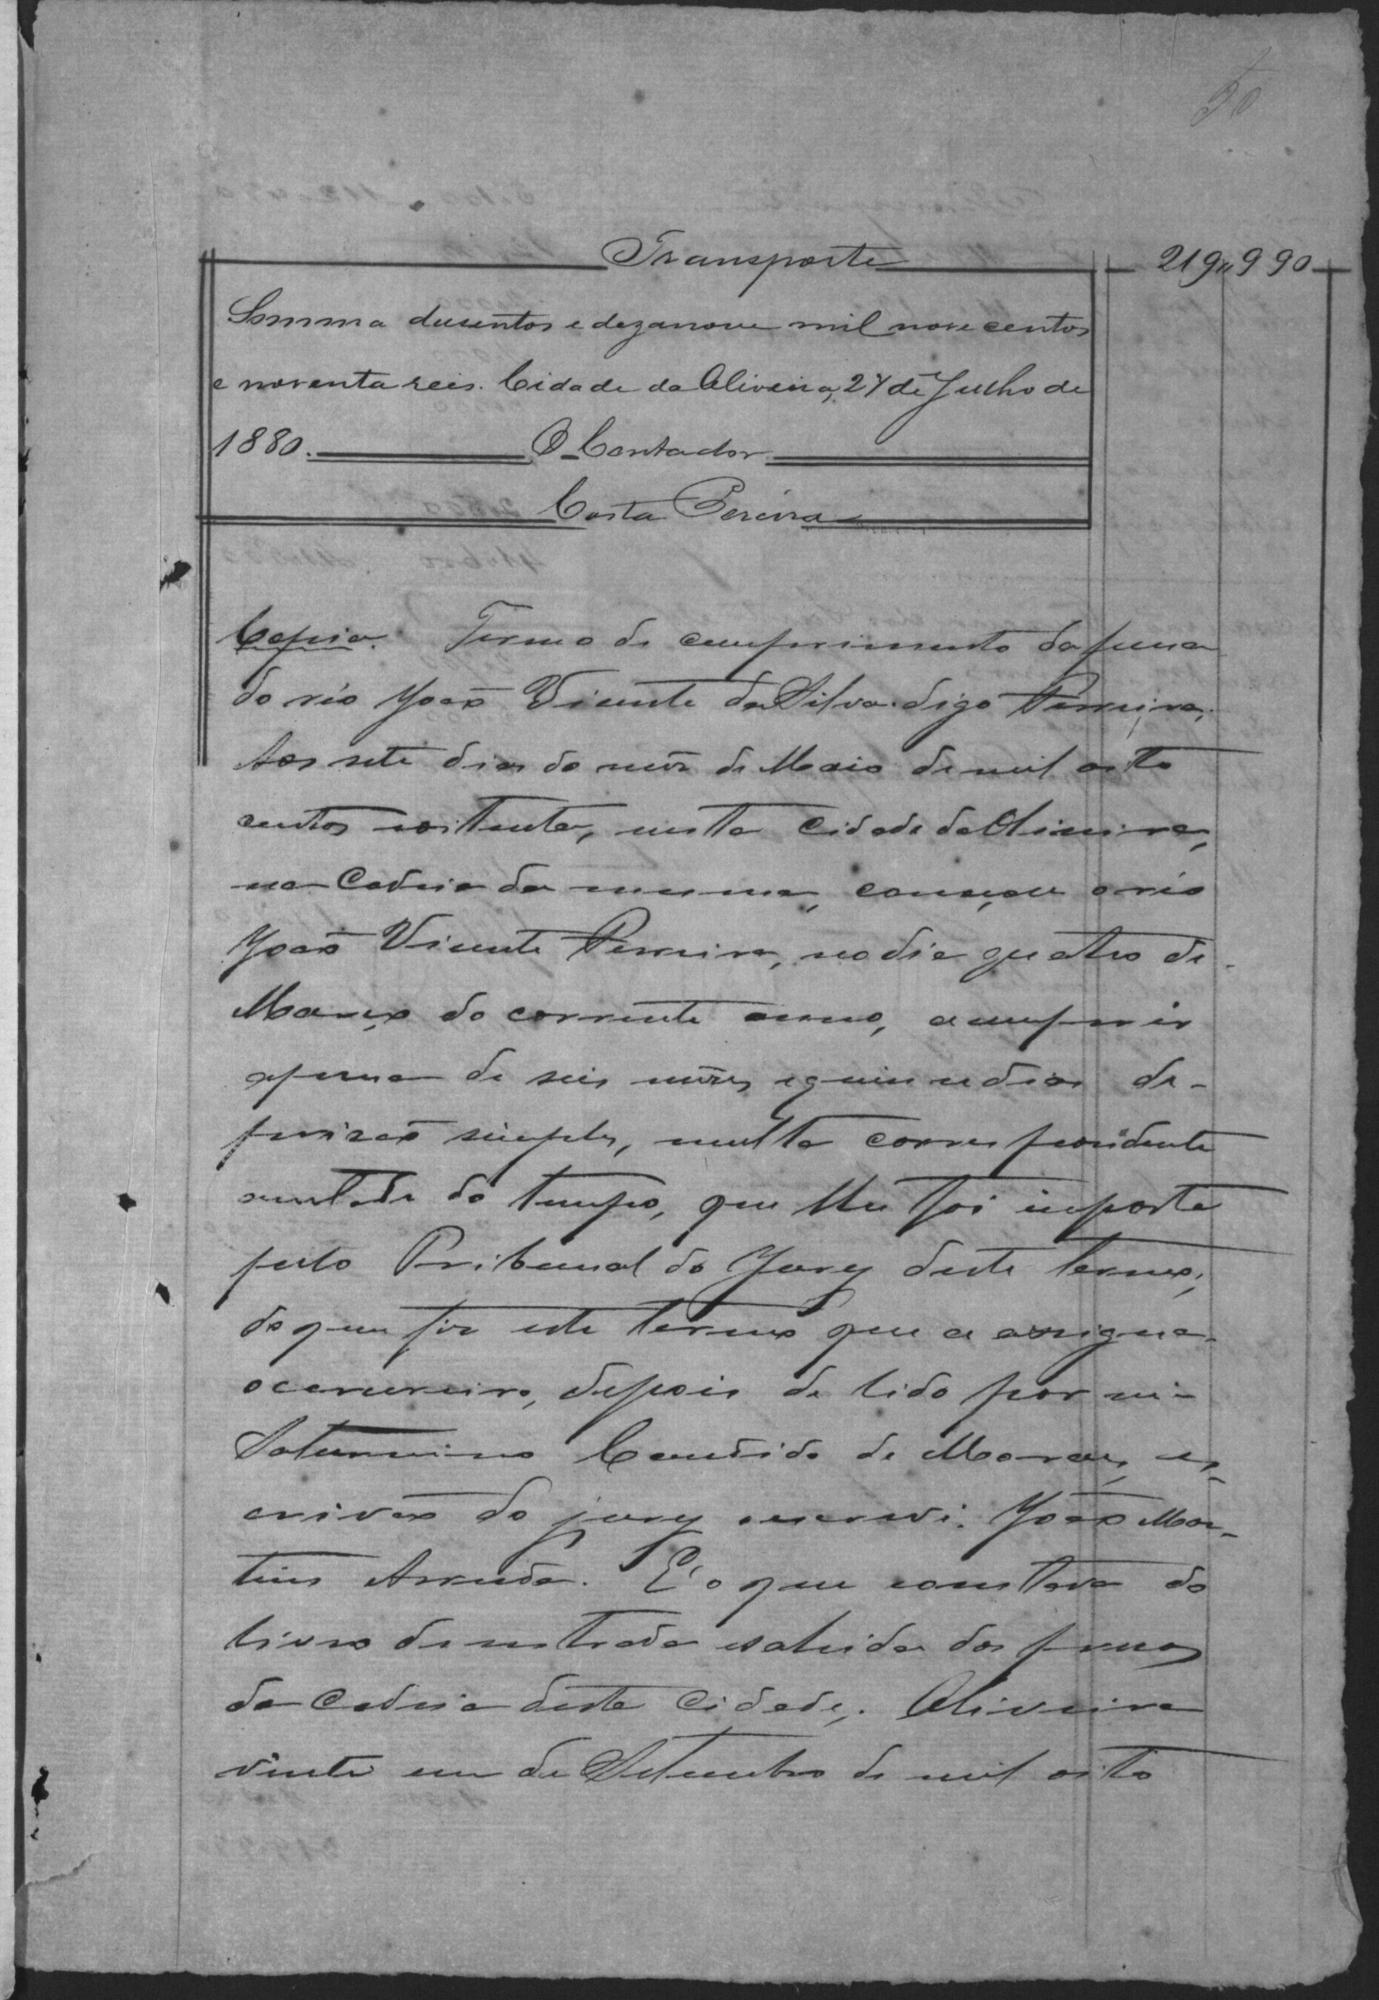 50
Transporte 219$990
Somma dusentos e dezanove mil nove centos
e noventa reis. Cidade da Oliveira, 27 de Julho de
1880. O Contador
Costa Pereira
Copia. Termo de comprimento da pena
do réo João Vicente da Silva digo Ferreira.
Aos sete dias do mês de Maio de mil oito
centos e oitenta, nesta Cidade da Oliveira,
na Cadeia da mesma, começou o réo
João Vicente Ferreira, no dia quatro de
Março do corrente anno, a cumprir
a pena de seis mêses e quinze dias de
prizão simples, multa correspondente
ametade do tempo, que lhe foi imposta
pelo Tribunal do Jury deste termo,
do que fiz este termo que a assigna
o carcereiro, depois de lido por mi
Saturnino Candido de Moraes, es-
crivão do jury o escrevi. João Mar-
tins Arruda. E' o que constava do
livro de entrada e sahida dos presos
da Cadeia desta Cidade. Oliveira
vinte um de Setembro de mil oito